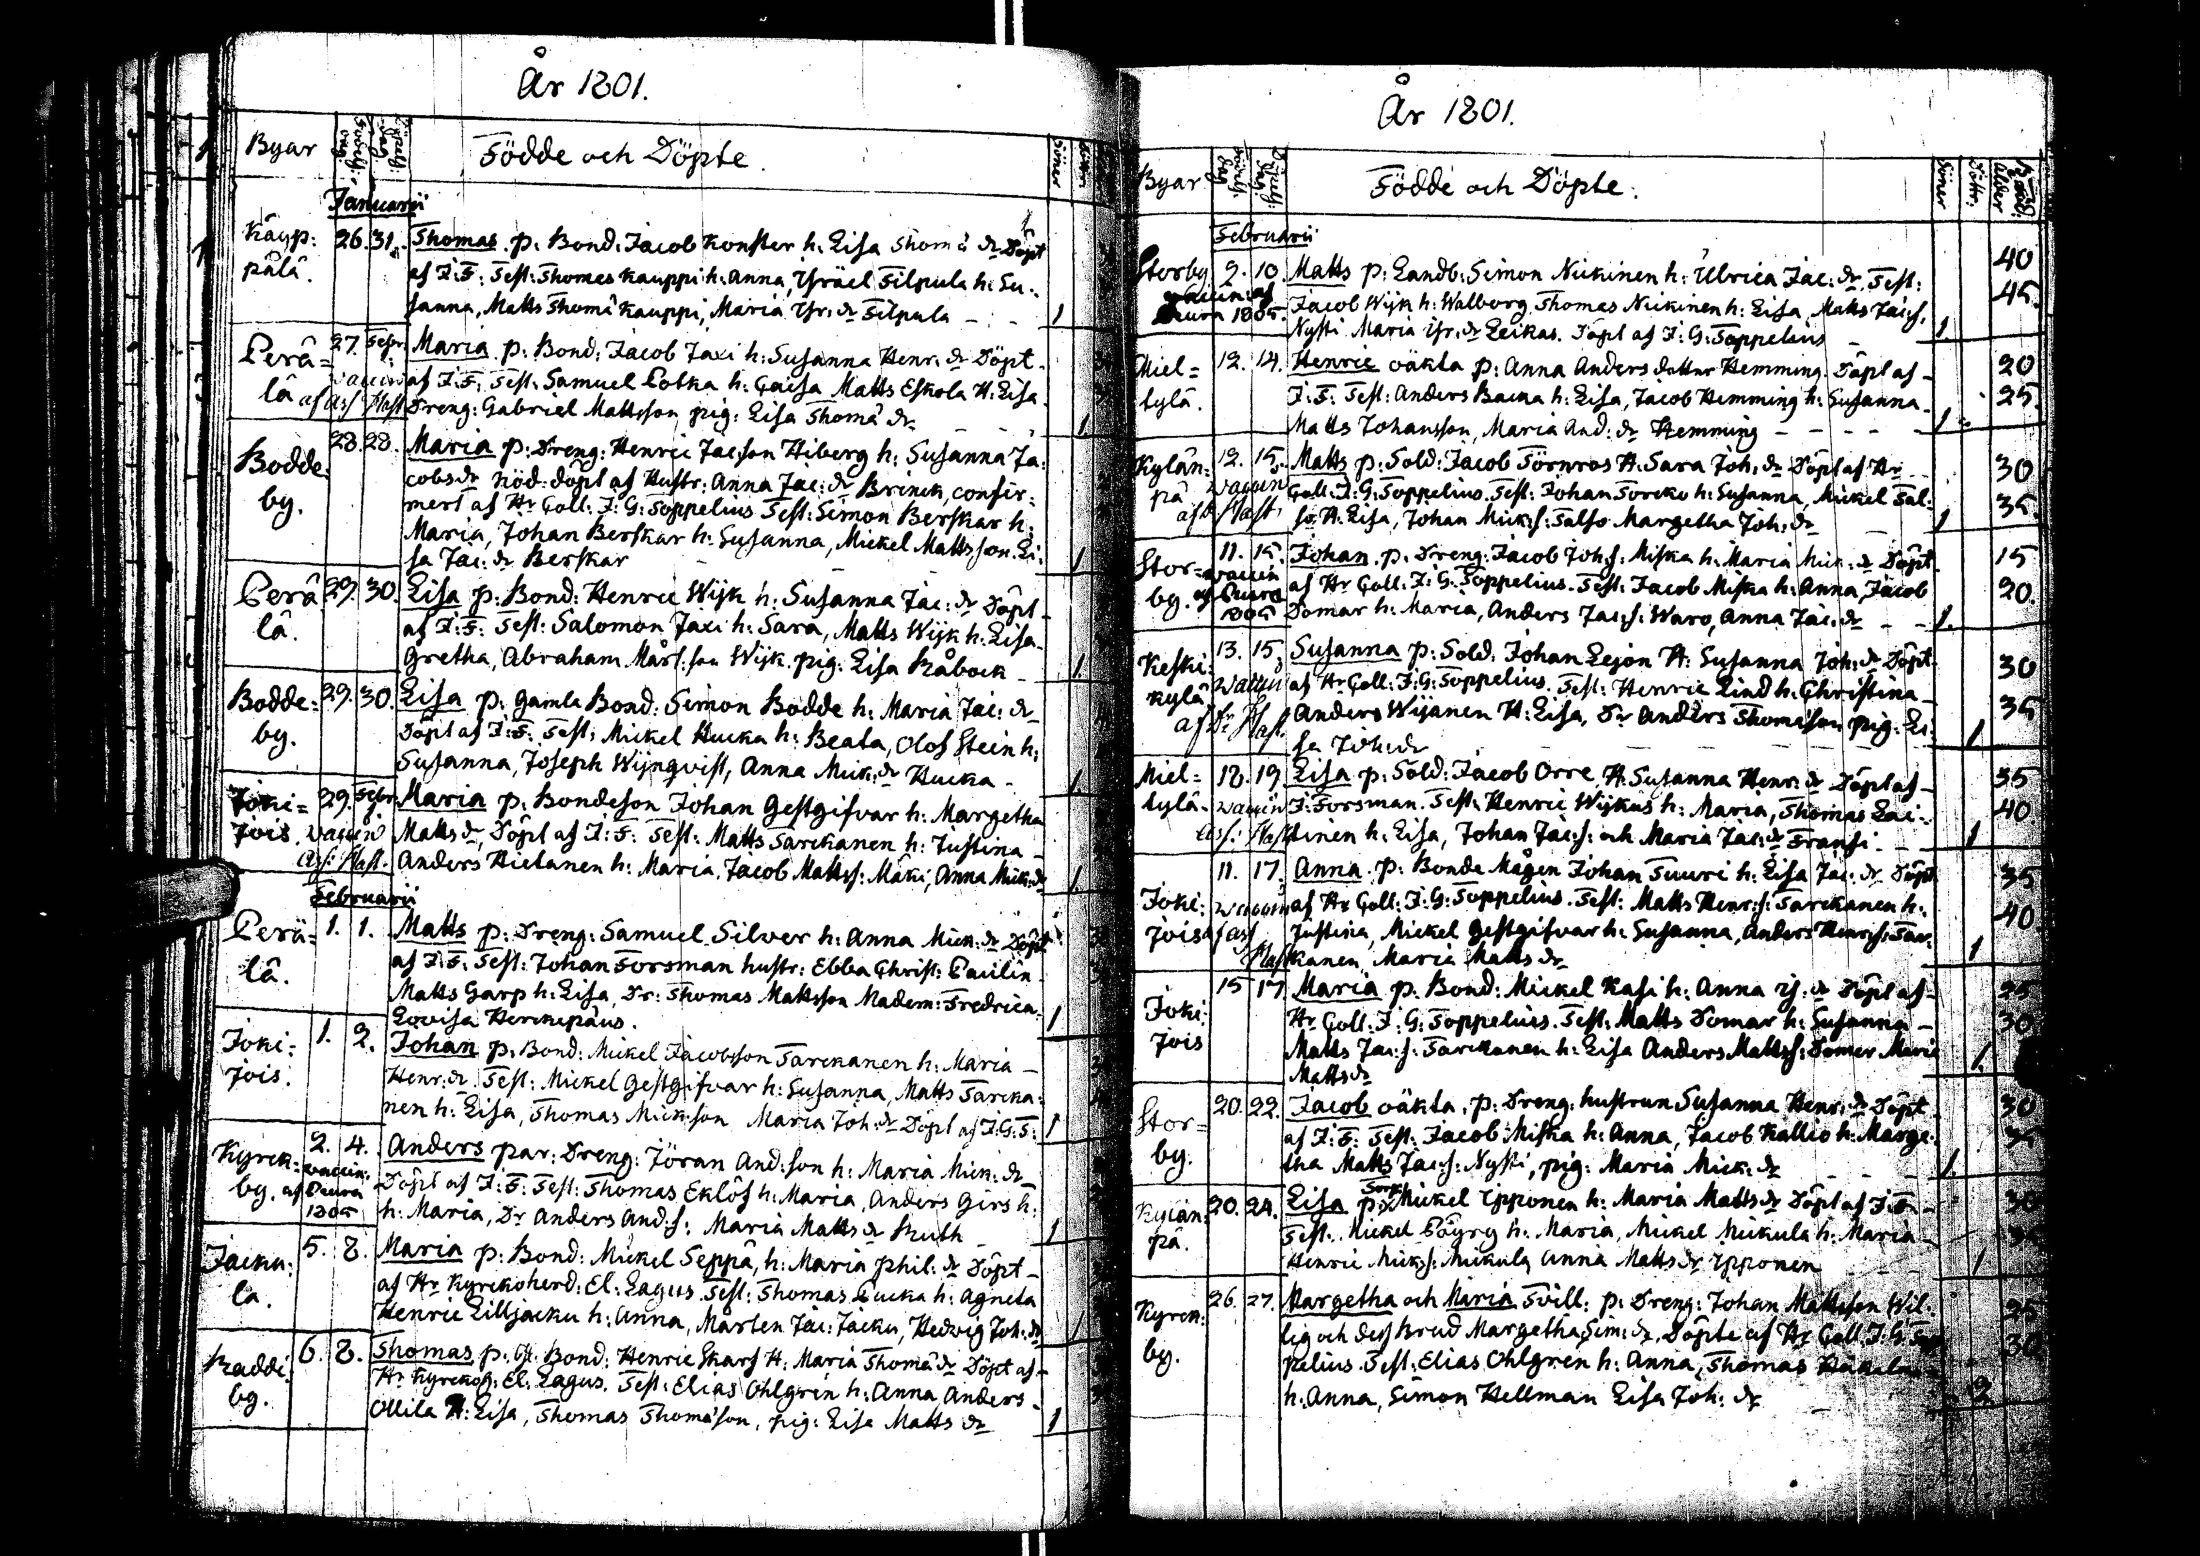 År 1801.
Byar Födde och Döpte.
Januarii
Käyp: 26. 31. Thomas p. Bond: Jacob Konster h: Lisa Thomæ dr Döpt
pälä. af J: F: Test: Thomas Kauppi h: Anna, Ysräel Filpula h: Su-
sanna, Matts Thomæ Kauppi, Maria Ysr: dr Filpula 1
Perä= 27. Febr. Maria p: Bond: Jacob Jaxi h: Susanna Henr: dr Döpt
lä vaccin af J: F: Test: Samuel Potka h: Caisa Matts Eskola H: Lisa
af Dreng: Gabriel Mattsson pig: Lisa Thomæ dr 1
Bodde 28. 28. Maria p: Dreng: Henric Jacson Hiberg h: Susanna Ja:
by. cobsdr Nöd: döpt af Hustr: Anna Jac: dr Brinck, confir:
mert af Hr Coll: J: G: Toppelius Test: Simon Berskar h:
Maria, Johan Berskar h: Susanna, Mickel Mattsson Li:
sa Jac: dr Berskar 1
Perä 29. 30. Lisa p: Bond: Henric Wijk h: Susanna Jac: dr Döpt
lä. af J: F: Test: Salomon Jaxi h: Sara, Matts Wijk h: Lisa
Gretha, Abraham Mårt:son Wijk. pig: Lisa Råbock 1.
Bodde: 29. 30. Lisa p: gamle Bond: Simon Bodde h: Maria Jac: dr
by. Döpt af J: F: Test: Mickel Hucka h: Beata, Olof Stein h:
Susanna, Joseph Wijnqvist, Anna Mick: dr Hucka 1.
Joki= 29. Febr. Maria p: Bondeson Johan Gestgifvar h: Margetha
jois. vaccin Matts dr, Döpt af J: F: Test: Matts Tarckanen h: Justina
Anders Hietanen h: Maria, Jacob Matts s: Mäki, Anna Mick: dr 1.
Februarii
Perä= 1. 1. Matts p: Dreng: Samuel Silver h: Anna Mick: dr Döpt
lä. af J: F: Test: Johan Forsman hustr: Ebba Christ: Paulin
Matts Garp h: Lisa, Dr: Thomas Mattsson Madem: Fredrica
Lovisa Herckepæus. 1
Joki: 1. 2. Johan p: Bond: Mickel Jacobsson Tarckanen h: Maria
jois. Henr: dr. Test: Mickel Gestgifvar h: Susanna, Matts Tarcka:
nen h: Lisa, Thomas Mick:son Maria Joh: dr Döpt af J: G: T: 1
Kyrck: 2. 4. Anders par: Dreng: Jöran And:son h: Maria Mick: dr
by. vaccin: Döpt af J: F: Test: Thomas Eklöf h: Maria, Anders Girs h:
af Peura 1805 h: Maria, Dr Anders And: s: Maria Matts dr Ruth 1
Jacku: 5. 8. Maria p: Bond: Mickel Seppä, h: Maria Phil: dr Döpt
la. af Hr Kyrckoherd: El: Lagus Test: Thomas Lucka h: Agneta
Henric Lilljacku h: Anna, Mårten Jac: Jacku, Hedvig Joh: dr 1
Raddi 6. 8. Thomas p: Bond: Henric Skarf H: Maria Thomæ dr Döpt af
by. Hr Kyrckoh: El: Lagus. Test: Elias Ohlgrén h: Anna, Anders
Ollila H: Lisa, Thomas Thomæson, pig: Lisa Matts dr 1
År 1801.
Byar Födde och Döpte. Söner Döttr.
Februarii
Storby 9. 10. Matts p: Landb: Simon Nickinen h: Ulrica Jac: dr Test: 40
vaccin: af Jacob Wijk h: Walborg Thomas Nickinen h: Lisa, Matts Jac: s. 45.
Peura 1805. Nysti Maria isr: dr Leikas. Döpt af J: G: Toppelius 1.
Miel= 12. 14. Henric oäkta p: Anna Anders dotter Hemming. Döpt af 20
tylä. J: F: Test: Anders Backa h: Lisa, Jacob Hemming h: Susanna 25.
Matts Johansson, Maria And: dr Hemming 1
Kylän: 12. 15. Matts p: Sold: Jacob Törnros H. Sara Joh: dr Döpt af Hr 30
pä. vaccin Coll: J: G: Toppelius. Test: Johan Torcko h: Susanna, Mickel Sal: 35.
so H: Lisa, Johan Mick: s: Salso Margetha Joh: dr 1
Stor= 11. 15. Johan p: Dreng: Jacob Joh s: Miska h: Maria Mick: dr Döpt 15
vaccin af Hr Coll: J: G: Toppelius. Test: Jacob Miska h: Anna, Jacob 20.
by. af Peura 1805 Domar h: Maria, Anders Jac: s: Waro, Anna Jac: dr 1.
Keski: 13. 15. Susanna p: Sold: Johan Lejon H: Susanna Joh: dr Döpt 30
kylä vaccin af Hr Coll: J: G: Toppelius. Test: Henric Lind h: Christina 35
af Dr Anders Wijanen H: Lisa, Dr Anders Thomæson pig: Li:
sa Joh: dr 1
Miel= 18. 19. Lisa p: Sold: Jacob Orre H: Susanna Henr: dr Döpt af 35
tylä. vaccin J: Forsman. Test: Henric Wijkus h: Maria, Thomas Lai: 40.
tinen h: Lisa, Johan Jac: s: och Maria Jac: dr Fransi 1
11. 17. Anna p: Bonde Mågen Johan Tuuri h: Lisa Jac: dr Döpt 35
Joki: vaccin af Hr Coll: J: G: Toppelius. Test: Matts Henr: s: Tarckanen h: 40.
jois Justina, Mickel Gestgifvar h: Susanna, Anders Henr: s: Tar:
kanen, Maria Matts dr 1
15 17. Maria p: Bond: Mickel Kasi h: Anna is: dr Döpt af 25
Joki: Hr Coll: J: G: Toppelius. Test: Matts Domar h: Susanna 30
jois Matts Jac: s: Tarckanen h: Lisa Anders Matts s: Domar Maria
Matts dr 1.
Stor= 20. 22. Jacob oäkta. p: Dreng: hustrun Susanna Henr: dr Döpt 30
by. af J: F: Test: Jacob Miska h: Anna, Jacob Kallio h: Marge: 35
tha Matts Jac: s: Nysti, pig: Maria Mick: dr 1.
Kylän: 20. 24. Lisa p: Torp: Mickel Ypponen h: Maria Matts dr Döpt af J: F: 30
pä. Test: Mickel Pöyry h: Maria, Mickel Mickula h: Maria 35
Henric Mick: s: Mickula, Anna Matts dr Ypponen 1
Kyrck: 26. 27. Margetha och Maria, Tvill: p: Dreng: Johan Mattsson Wil- 25
by. lig och dess Brud Margetha Sim: dr, Döpte af Hr Coll: J: G: Top 30
pelius. Test: Elias Ohlgrén h: Anna, Thomas
h: Anna, Simon Hellman Lisa Joh: dr 2